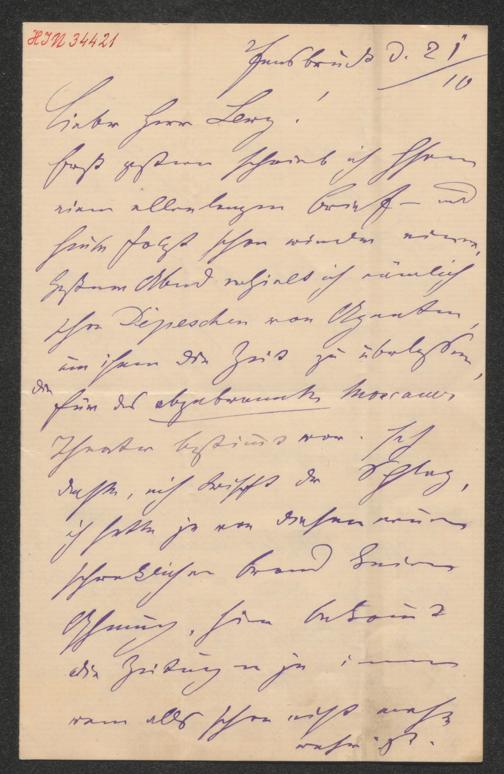 HIN 34421
Innsbruck d. 21/10
Lieber Herr Lewy!
Erst gestern schrieb ich Ihnen
einen ellenlangen Brief – und
heute folgt schon wieder einer,
gestern Abend erhielt ich nämlich
schon Depeschen von Agenten,
um ihnen die Zeit zu überlassen,
die für das abgebrannte Moscauer
Theater bestimmt war. Ich
dachte, mich trifft der Schlag,
ich hatte ja von diesem neuen
schrecklichen Brand keine
Ahnung, hier bekommt
die Zeitungen ja immer
wenn alles schon nicht mehr
wahr ist.